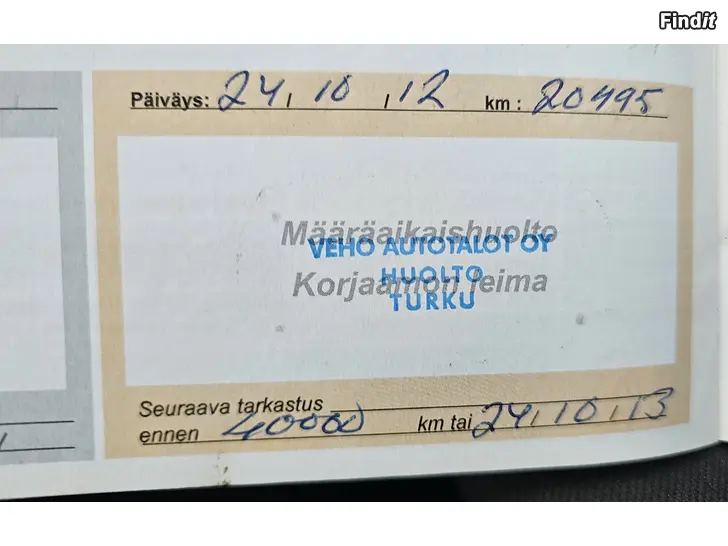 Findit
Päiväys: 24 / 10 / 12 km : 20495
Määräaikaishuolto
VEHO AUTOTALOT OY
HUOLTO
Korjaamon leima
TURKU
Seuraava tarkastus
ennen 40000 km tai 24, 10, 13